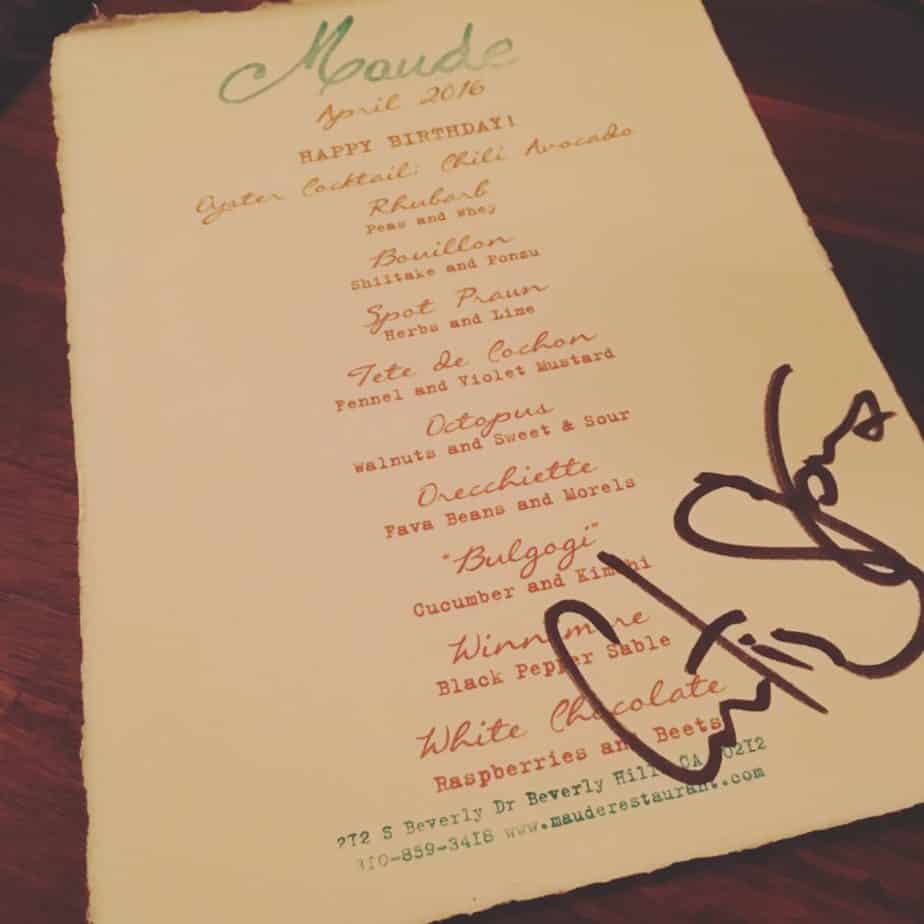 Maude
April 2016
HAPPY BIRTHDAY!
Oyster Cocktail: Chili Avocado
Rhubarb
Peas and Whey
Bouillon
Shiitake and Ponzu
Spot Prawn
Herbs and Lime
Tete de Cochon
Fennel and Violet Mustard
Octopus
Walnuts and Sweet & Sour
Orecchiette
Fava Beans and Morels
"Bulgogi"
Cucumber and Kimchi
Winnemere
Black Pepper Sable
White Chocolate
Raspberries and Beets
212 S Beverly Dr Beverly Hills CA 90212
310-859-3418 www.mauderestaurant.com
Curtis Stone